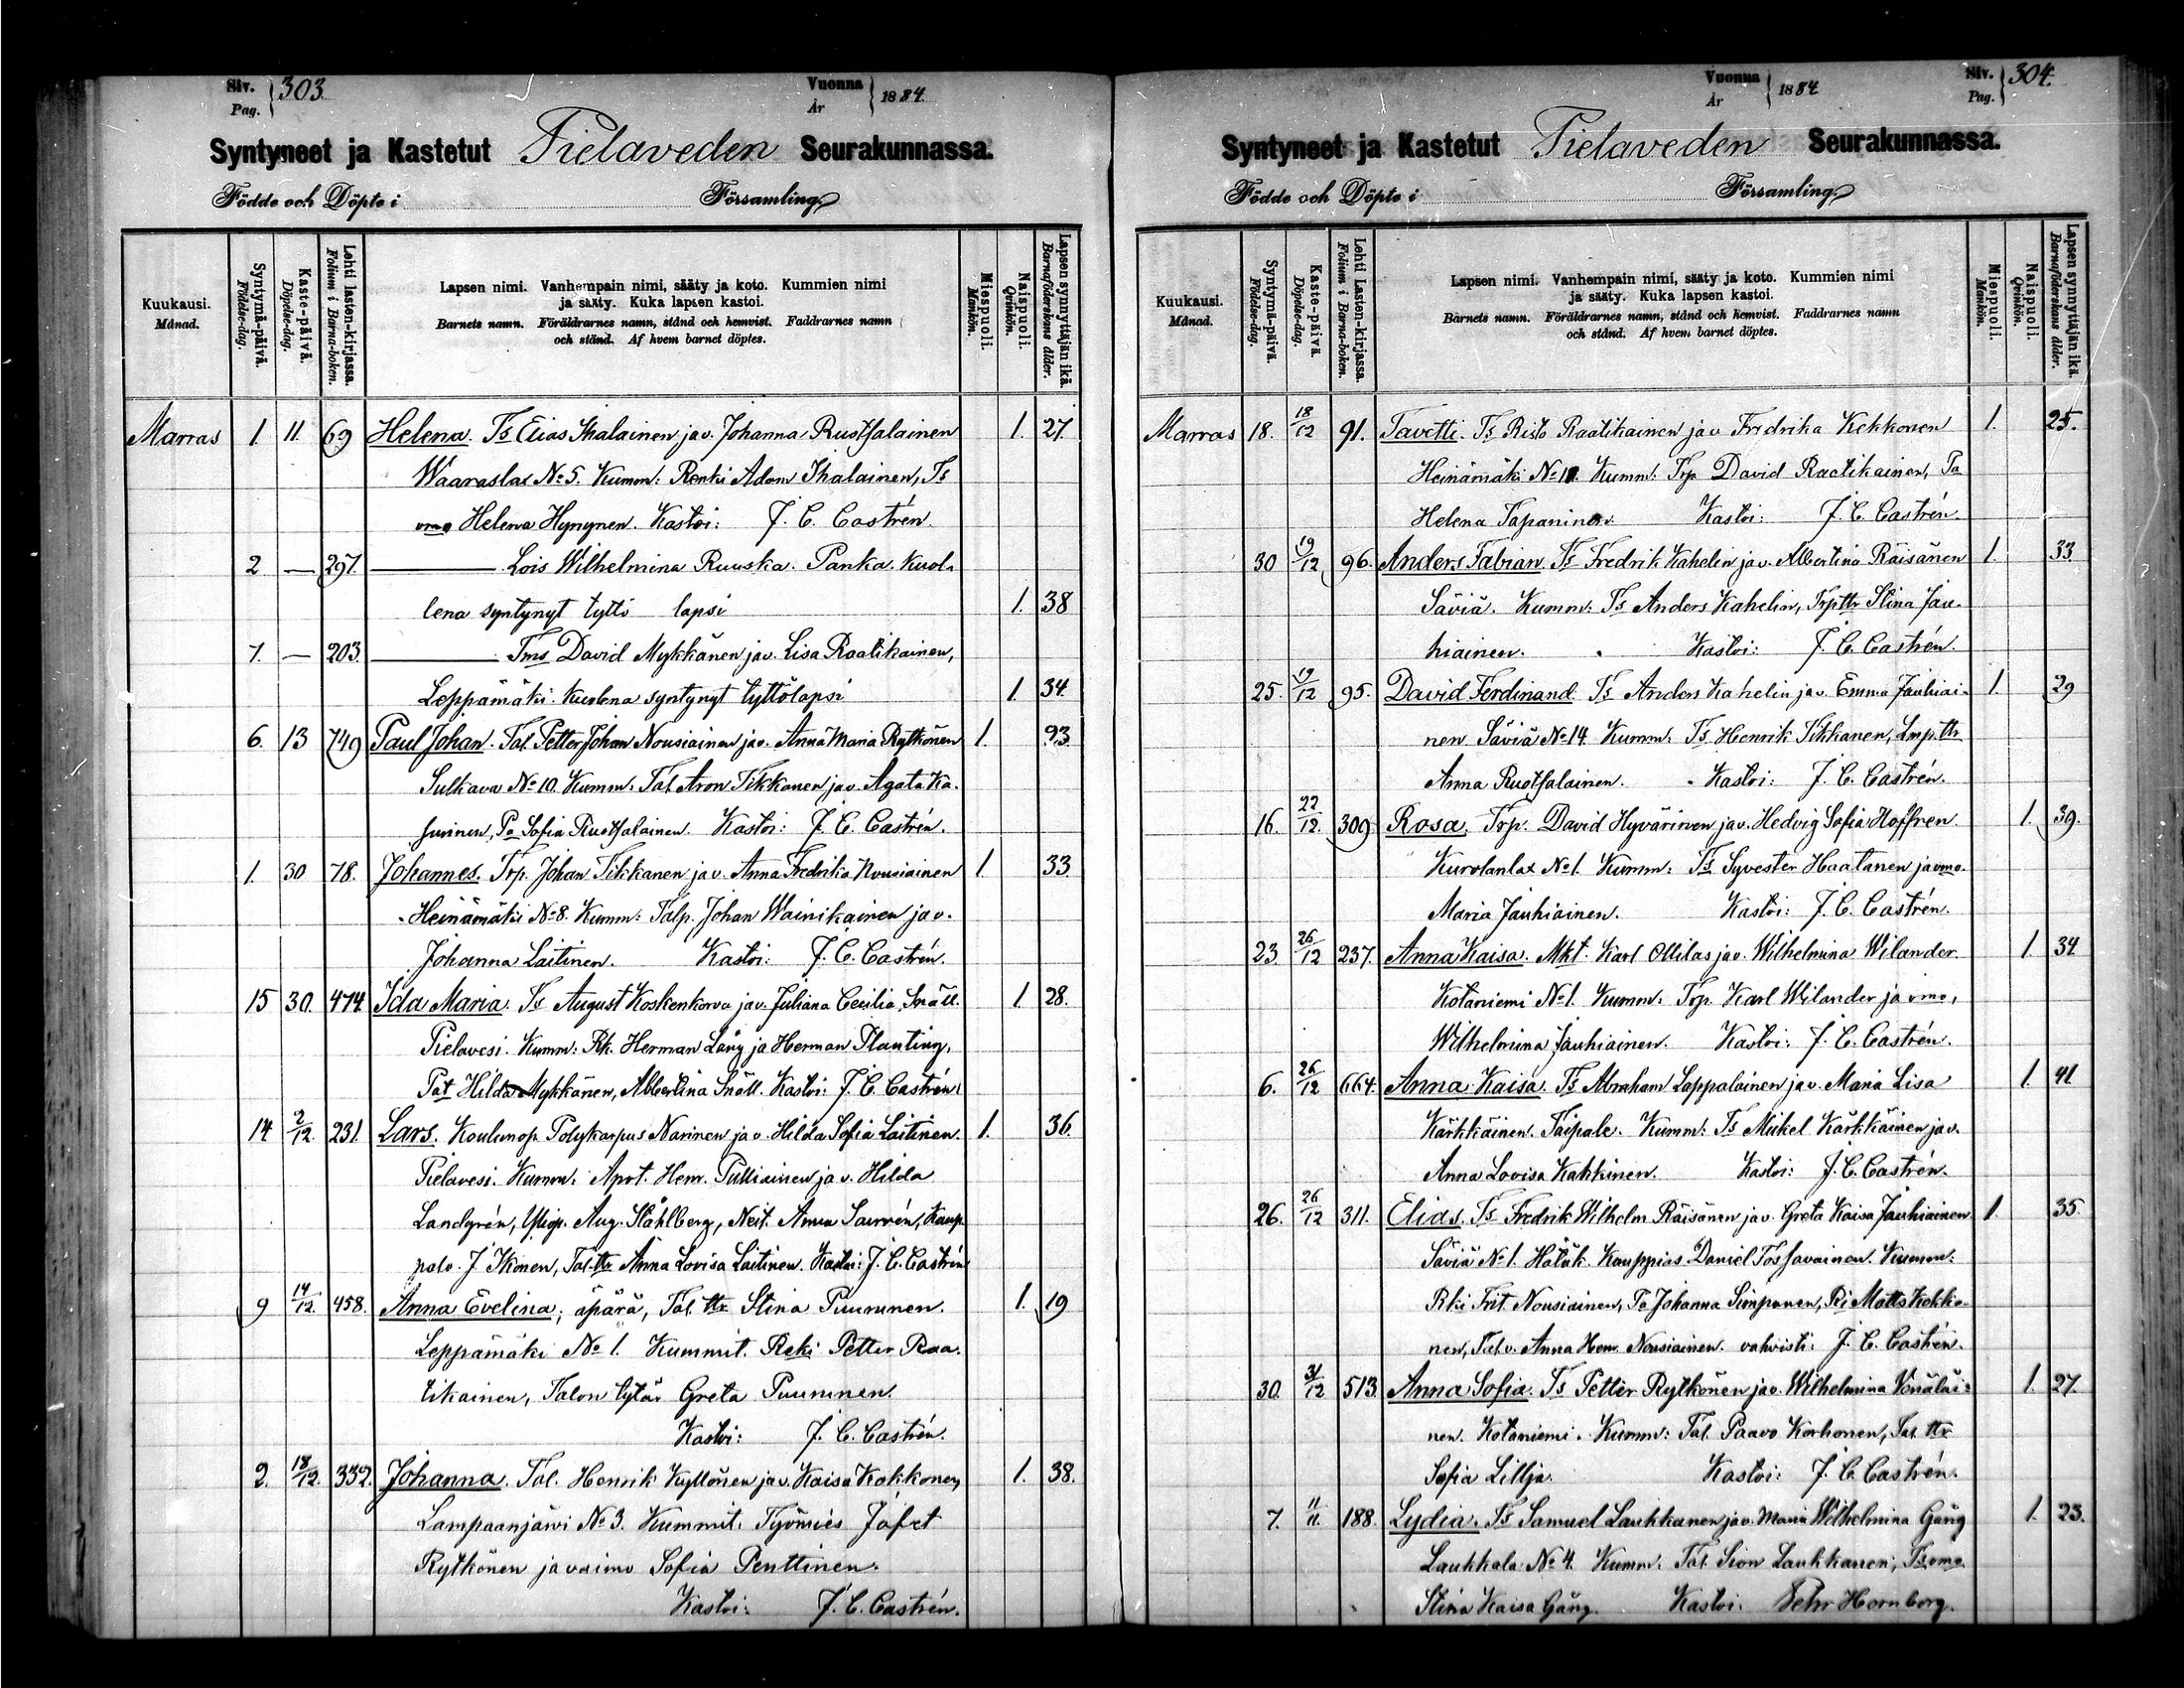 Siv. 303.
Pag.
Vuonna 1884.
År
Syntyneet ja Kastetut Pielaveden Seurakunnassa.
Födde och Döpte i Församling
Kuukausi.
Månad.
Syntymä-päivä.
Födelse-dag.
Kaste-päivä.
Döpelse-dag.
Lehti lasten-kirjassa.
Folium i Barna-boken.
Lapsen nimi. Vanhempain nimi, sääty ja koto. Kummien nimi
ja sääty. Kuka lapsen kastoi.
Barnets namn. Föräldrarnes namn, stånd och hemvist. Faddrarnes namn
och stånd. Af hvem barnet döptes.
Miespuoli.
Mankön.
Naispuoli.
Qvinkön.
Lapsen synnyttäjän ikä.
Barnaföderskans ålder.
Marras 1. 11. 69 Helena. Ts Elias Ihalainen ja v. Johanna Ruotsalainen 1. 27.
Waaraslax No 5. Kumm: Renki Adam Ihalainen, Ts
vmo Helena Hynynen. Kastoi: J. C. Castrén.
2 — 297. Lois Wilhelmina Ruuska. Panka. Kuol-
lena syntynyt tyttö lapsi 1. 38
7. — 203. Tms David Mykkänen ja v. Lisa Raatikainen,
Leppämäki. Kuolena syntynyt tyttölapsi 1. 34.
6. 13 749 Paul Johan. Tal. Petter Johan Nousiainen ja v. Anna Maria Rytkönen 1. 93.
Sulkava No 10. Kumm: Tal. Aron Tikkanen ja v. Agata Ka-
surinen, Pa Sofia Ruotsalainen. Kastoi: J. C. Castrén.
1. 30 78. Johannes. Trp. Johan Tikkanen ja v. Anna Fredrika Nousiainen 1. 33.
Heinämäki No 8. Kumm: Talp. Johan Wainikainen ja v.
Johanna Laitinen. Kastoi: J. C. Castrén.
15 30. 474. Ida Maria. Ts August Koskenkorva ja v. Juliana Cecilia Snäll. 1. 28.
Pielavesi. Kumm: Rk. Herman Lång ja Herman Planting,
Pat Hilda Mykkänen, Albertina Snäll. Kastoi: J. C. Castrén.
14 2/12. 231. Lars. Koulunop. Polykarpus Narinen ja v. Hilda Sofia Laitinen. 1. 36.
Pielavesi. Kumm: Apot. Henr. Pulliainen ja v. Hilda
Landgrén, Yliop. Aug. Ståhlberg, Neit. Anna Saurén, Kaup
palv. J. Ikonen, Tal. ttr Anna Lovisa Laitinen. Kastoi: J. C. Castrén
9 14/12. 458. Anna Evelina; äpärä, Tal. ttr Stina Puurunen. 1. 19
Leppämäki No 1. Kummit. Reki Petter Raa-
tikainen, Talon tytär Greta Puurunen.
Kastoi: J. C. Castrén.
2. 18/12. 332. Johanna. Tal. Henrik Kyllönen ja v. Kaisa Kokkonen, 1. 38.
Lampaanjärvi No 3. Kummit. Työmies Jafet
Rytkönen ja vaimo Sofia Penttinen.
Kastoi: J. C. Castrén.
Vuonna 1884.
År
Siv. 304.
Pag.
Syntyneet ja Kastetut Pielaveden Seurakunnassa.
Födde och Döpte i Församling
Kuukausi.
Månad.
Syntymä-päivä.
Födelse-dag.
Kaste-päivä.
Döpelse-dag.
Lehti Lasten-kirjassa.
Folium i Barna-boken.
Lapsen nimi. Vanhempain nimi, sääty ja koto. Kummien nimi
ja sääty. Kuka lapsen kastoi.
Barnets namn. Föräldrarnes namn, stånd och hemvist. Faddrarnes namn
och stånd. Af hvem barnet döptes.
Miespuoli.
Mankön.
Naispuoli.
Qvinkön.
Lapsen synnyttäjän ikä.
Barnaföderskans ålder.
Marras 18. 18/12 91. Tavetti. Ts Risto Raatikainen ja v Fredrika Kekkonen 1. 25.
Heinämäki No Kumm: Trp. David Raatikainen, Pa
Helena Tapaninen. Kastoi: J. C. Castrén.
30 19/12 96. Anders Fabian. Ts Fredrik Kahelin ja v. Albertina Räisänen 1. 33.
Säviä. Kumm: Ts Anders Kahelin, Trp ttr Stina Jau-
hiainen. Kastoi: J. C. Castrén.
25. 19/12 95. David Ferdinand. Ts Anders Kahelin ja v. Emma Jauhiai- 1. 29
nen. Säviä No 14. Kumm: Ts Henrik Tikkanen, Lmp. ttr
Anna Ruotsalainen. Kastoi: J. C. Castrén.
16. 22/12. 309. Rosa. Trp. David Hyvärinen ja v. Hedvig Sofia Hoffren. 1. 39.
Kurolanlax No 1. Kumm: Ts Syvester Haatanen ja vmo.
Maria Jauhiainen. Kastoi: J. C. Castrén.
23. 26/12 237. Anna Kaisa. Mkt. Karl Ollilas ja v. Wilhelmina Wilander. 1. 34
Kotaniemi No 1. Kumm: Trp. Karl Wilander ja vmo,
Wilhelmina Jauhiainen. Kastoi: J. C. Castrén.
6. 26/12 664. Anna Kaisa. Ts Abraham Lappalainen ja v. Maria Lisa 1. 41.
Kärkkäinen. Taipale. Kumm: Ts Mikel Kärkkäinen ja v.
Anna Lovisa Kakkinen. Kastoi: J. C. Castrén.
26. 26/12 311. Elias. Ts Fredrik Wilhelm Räisänen ja v. Greta Kaisa Jauhiainen 1. 35.
Säviä No 1. Hätäk. Kauppias Daniel Tossavainen. Kumm:
Rki Frit. Nousiainen, Pa Johanna Simpanen, Ri Matts Kekko-
nen, Tal. v. Anna Henr. Nousiainen. vahvisti: J. C. Castrén.
30. 31/12 513. Anna Sofia. Ts Petter Rytkönen ja v. Wilhelmina Venäläi- 1. 27.
nen. Kotaniemi. Kumm: Tal. Paavo Korhonen, Tal. ttr
Sofia Lillja. Kastoi: J. C. Castrén.
7. 11/11. 188. Lydia. Ts Samuel Laukkanen ja v. Maria Wilhelmina Gång 1. 23.
Laukkala No 4. Kumm: Tal. Sion Laukkanen, Ts vmo
Stina Kaisa Gång. Kastoi. Fehr Hornborg.